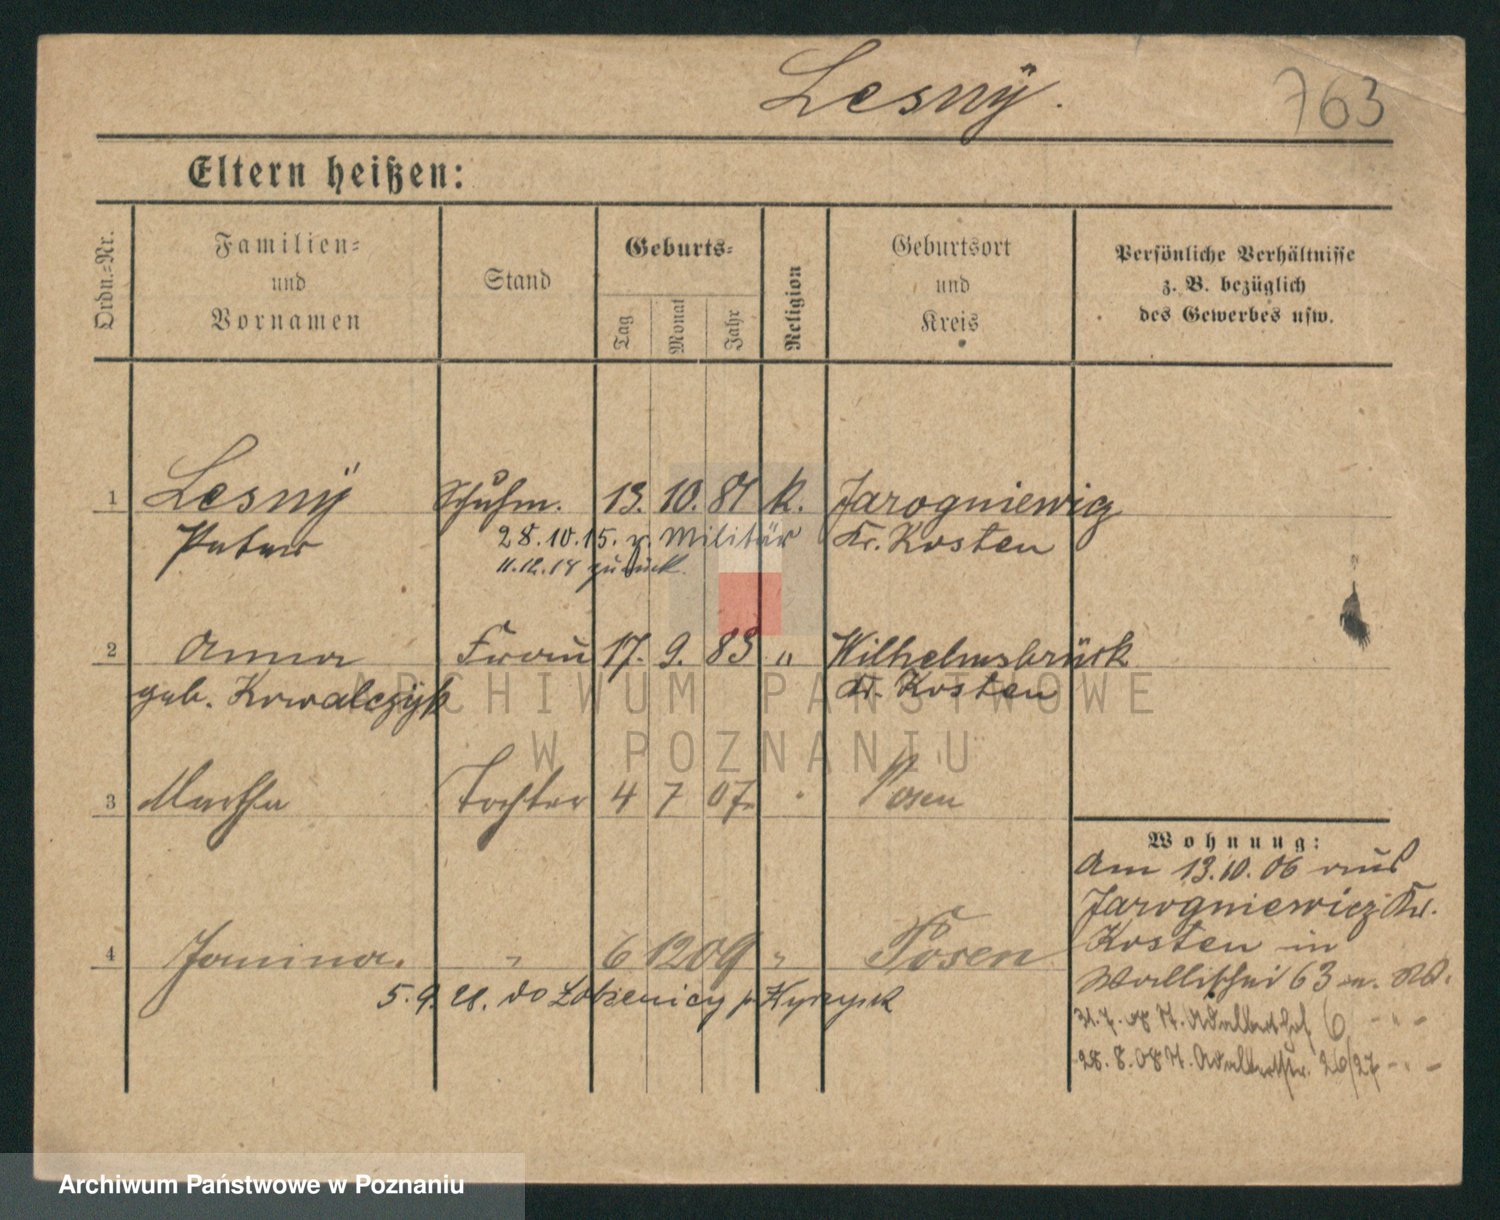 Lesnÿ.
763
Eltern heißen:
Ordn.=Nr.
Familien=
und
Vornamen
Stand
Geburts=
Tag
Monat
Jahr
Religion
Geburtsort
und
Kreis
Persönliche Verhältnisse
z. B. bezüglich
des Gewerbes usw.
1 Lesnÿ Schuhm. 13. 10. 81 k. Jarogniewicz
Peter 28.10.15. z. Militär Kr. Kosten
11.12.18 zurück.
2 Anna Frau 17. 9. 83 " Wilhelmsbrück
geb. Kowalczÿk Kr. Kosten
3 Martha Tochter 4 7 07. " Posen
Wohnung:
Am 13.10.06 aus
Jarogniewicz Kr.
Kosten in
Wallischei 63
4 Janina. " 6 12 09 " Posen
5.9.21. do Łobzenicy p Wyrzysk
31.7.08 N. Adalberthof 6 - " -
28.8.08 N. Adalbertstr. 26/27 - " -
ARCHIWUM PAŃSTWOWE
W POZNANIU
Archiwum Państwowe w Poznaniu